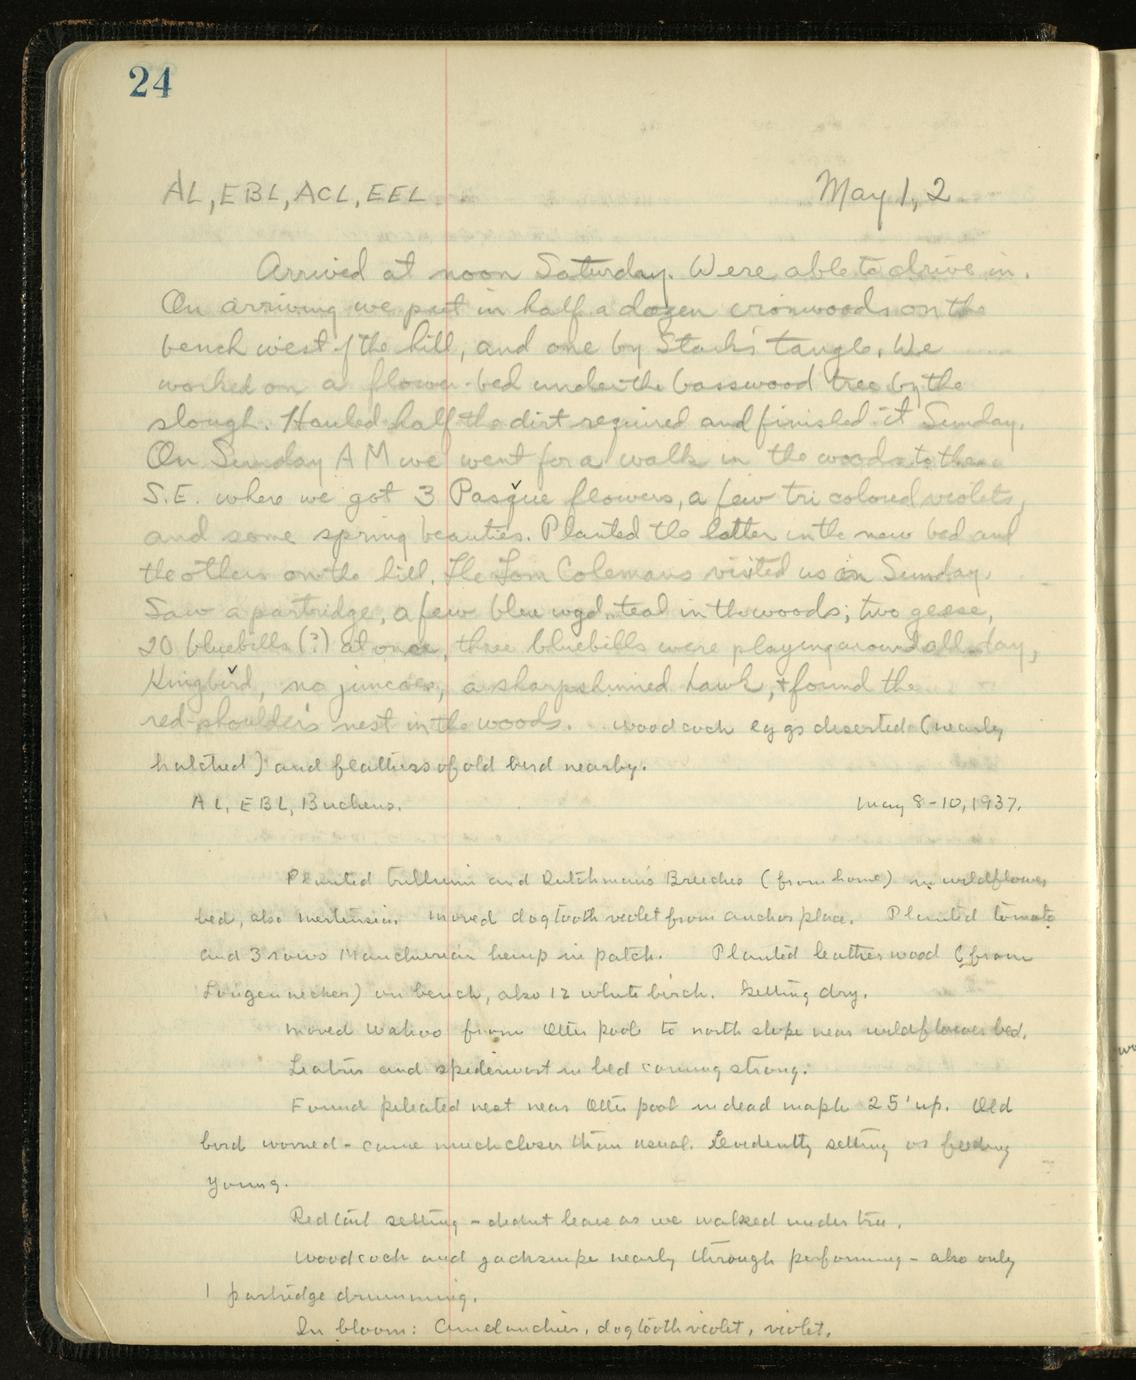 24
AL, EBL, ACL, EEL May 1, 2
Arrived at noon Saturday. Were able to drive in.
On arriving we put in half a dozen ironwoods on the
bench west of the hill, and one by Starks tangle. We
worked on a flower-bed under the basswood tree by the
slough. Hauled half the dirt required and finished it Sunday.
On Sunday A M we went for a walk in the woods to the
S.E. where we got 3 Pasque flowers, a few tri colored violets,
and some spring beauties. Planted the latter in the new bed and
the others on the hill. The Tom Colemans visited us on Sunday.
Saw a partridge, a few blue wgd. teal in the woods; two geese,
20 bluebills (?) at once, three bluebills were playing around all day,
Kingbird, no juncoes, a sharpshinned hawk, + found the
red-shoulder's nest in the woods. Woodcock eggs deserted (nearly
hatched) and feathers of old bird nearby.
AL, EBL, Buchens. May 8-10, 1937.
Planted trillium and Dutchman's Breeches (from home) in wildflower
bed, also mertensia. Moved dogtooth violet from anchor place. Planted tomato
and 3 rows Manchurian hemp in patch. Planted leatherwood (from
Longenecker) on bench, also 12 white birch. Getting dry.
Moved Wahoo from Otter pool to north slope near wildflower bed.
Liatris and spiderwort in bed coming strong.
Found pileated nest near Otter pool in dead maple 25' up. Old
bird worried - came much closer than usual. Evidently setting or feeding
young.
Redtail setting - didnt leave as we walked under tree.
Woodcock and jacksnipe nearly through performing - also only
1 partridge drumming.
In bloom: Amelanchier, dogtooth violet, violet.